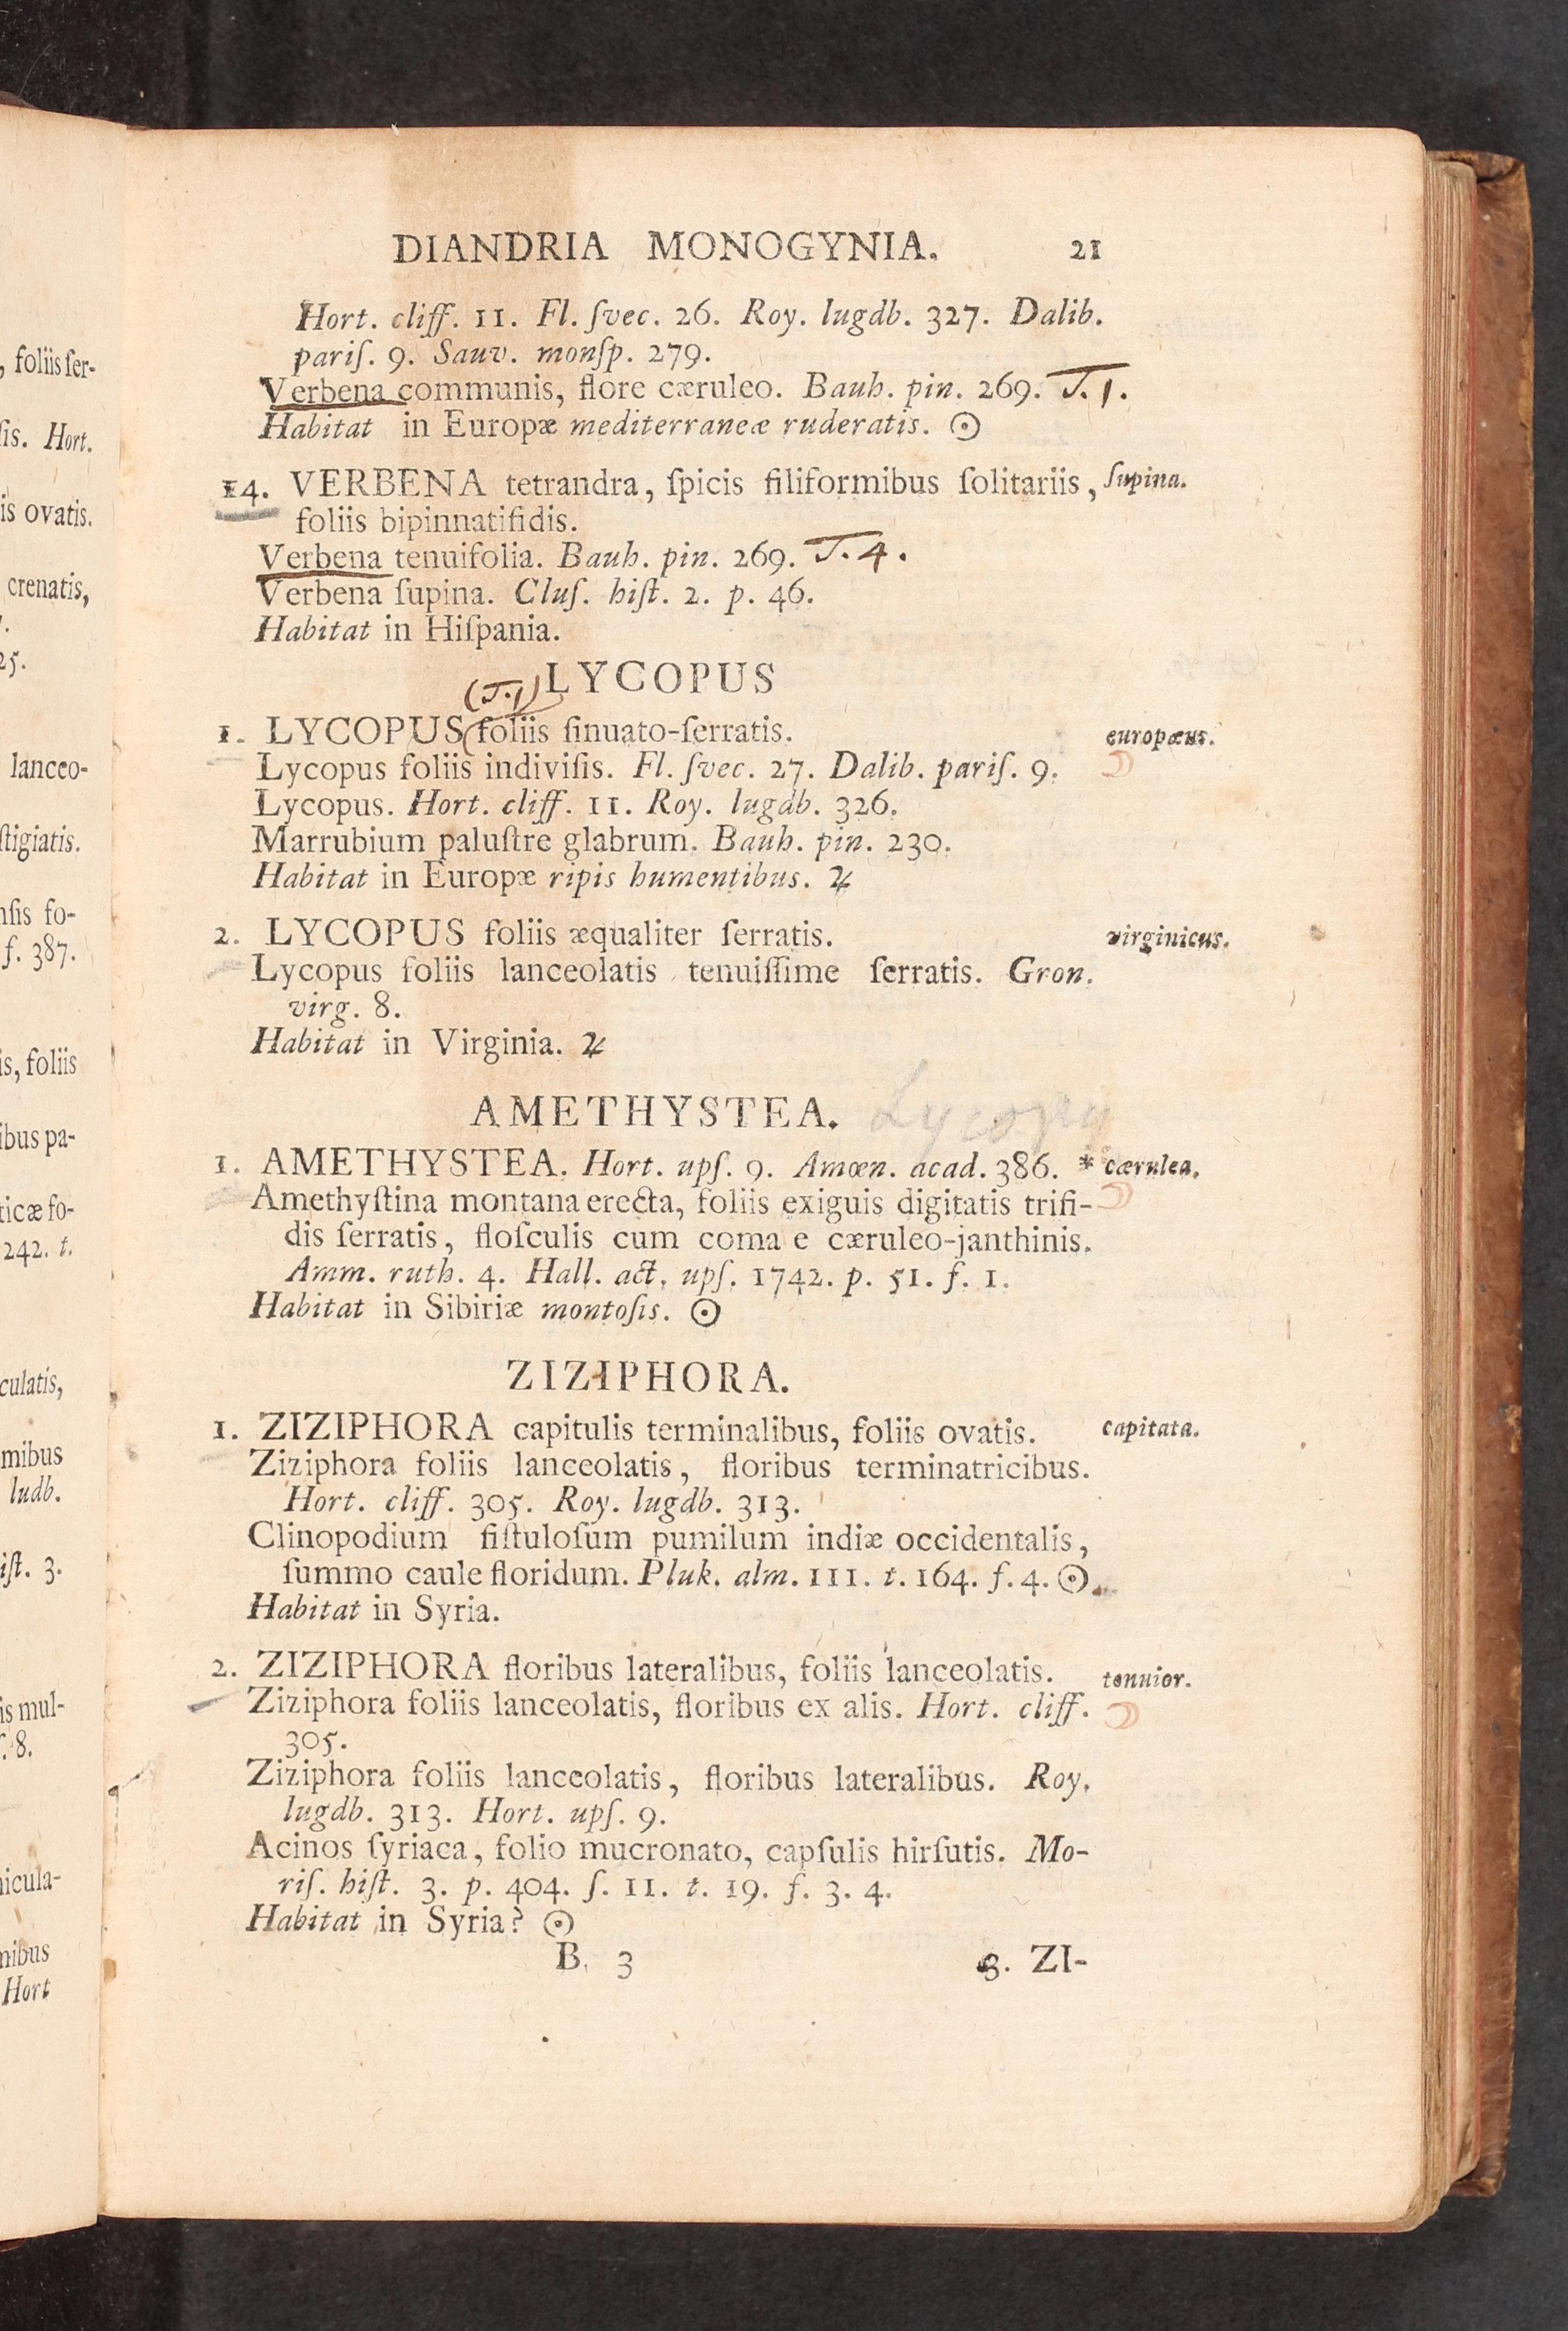 DIANDRIA MONOGYNIA. 21
Hort. cliff. 11. Fl. ſvec. 26. Roy. lugdb. 327. Dalib.
pariſ. 9. Sauv. monſp. 279.
Verbena communis, flore cæruleo. Bauh. pin. 269. T. 1.
Habitat in Europæ mediterraneæ ruderatis. ☉
14. VERBENA tetrandra, ſpicis filiformibus ſolitariis, ſupina.
foliis bipinnatifidis.
Verbena tenuifolia. Bauh. pin. 269. T. 4.
Verbena ſupina. Cluſ. hiſt. 2. p. 46.
Habitat in Hiſpania.
LYCOPUS
(T.1)
1. LYCOPUS foliis ſinuato-ſerratis. europæus.
Lycopus foliis indiviſis. Fl. ſvec. 27. Dalib. pariſ. 9.
Lycopus. Hort. cliff. 11. Roy. lugdb. 326.
Marrubium paluſtre glabrum. Bauh. pin. 230.
Habitat in Europæ ripis humentibus. ♃
2. LYCOPUS foliis æqualiter ſerratis. virginicus.
Lycopus foliis lanceolatis tenuiſſime ſerratis. Gron.
virg. 8.
Habitat in Virginia. ♃
AMETHYSTEA. Lycopu
1. AMETHYSTEA. Hort. upſ. 9. Amœn. acad. 386. * cærulea.
Amethyſtina montana erecta, foliis exiguis digitatis trifi-
dis ſerratis, floſculis cum coma e cæruleo-janthinis.
Amm. ruth. 4. Hall. act. upſ. 1742. p. 51. f. 1.
Habitat in Sibiriæ montoſis. ☉
ZIZIPHORA.
1. ZIZIPHORA capitulis terminalibus, foliis ovatis. capitata.
Ziziphora foliis lanceolatis, floribus terminatricibus.
Hort. cliff. 305. Roy. lugdb. 313.
Clinopodium fiſtuloſum pumilum indiæ occidentalis,
ſummo caule floridum. Pluk. alm. 111. t. 164. f. 4. ☉.
Habitat in Syria.
2. ZIZIPHORA floribus lateralibus, foliis lanceolatis. tenuior.
Ziziphora foliis lanceolatis, floribus ex alis. Hort. cliff.
305.
Ziziphora foliis lanceolatis, floribus lateralibus. Roy.
lugdb. 313. Hort. upſ. 9.
Acinos ſyriaca, folio mucronato, capſulis hirſutis. Mo-
riſ. hiſt. 3. p. 404. ſ. 11. t. 19. f. 3. 4.
Habitat in Syria? ☉
B 3 3. ZI-
, foliis ſer-
ſis. Hort.
is ovatis.
crenatis,
25.
lanceo-
ſtigiatis.
nſis fo-
f. 387.
is, foliis
ibus pa-
ticæ fo-
242. t.
culatis,
mibus
ludb.
iſt. 3.
is mul-
8.
nicula-
nibus
Hort